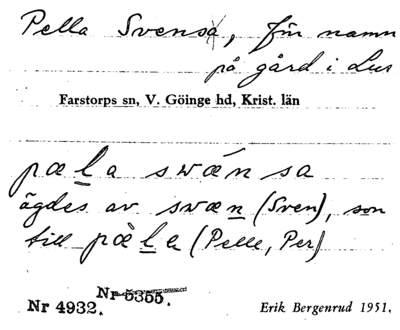 Pella Svensa, för namn
på gård i Lus
Farstorps sn, V. Göinge hd, Krist. län
pæla swænsa
ägdes av swæn (Sven), son
till pæ̀la (Pelle, Per)
Nr 5355.
Nr 4932.
Erik Bergenrud 1951.